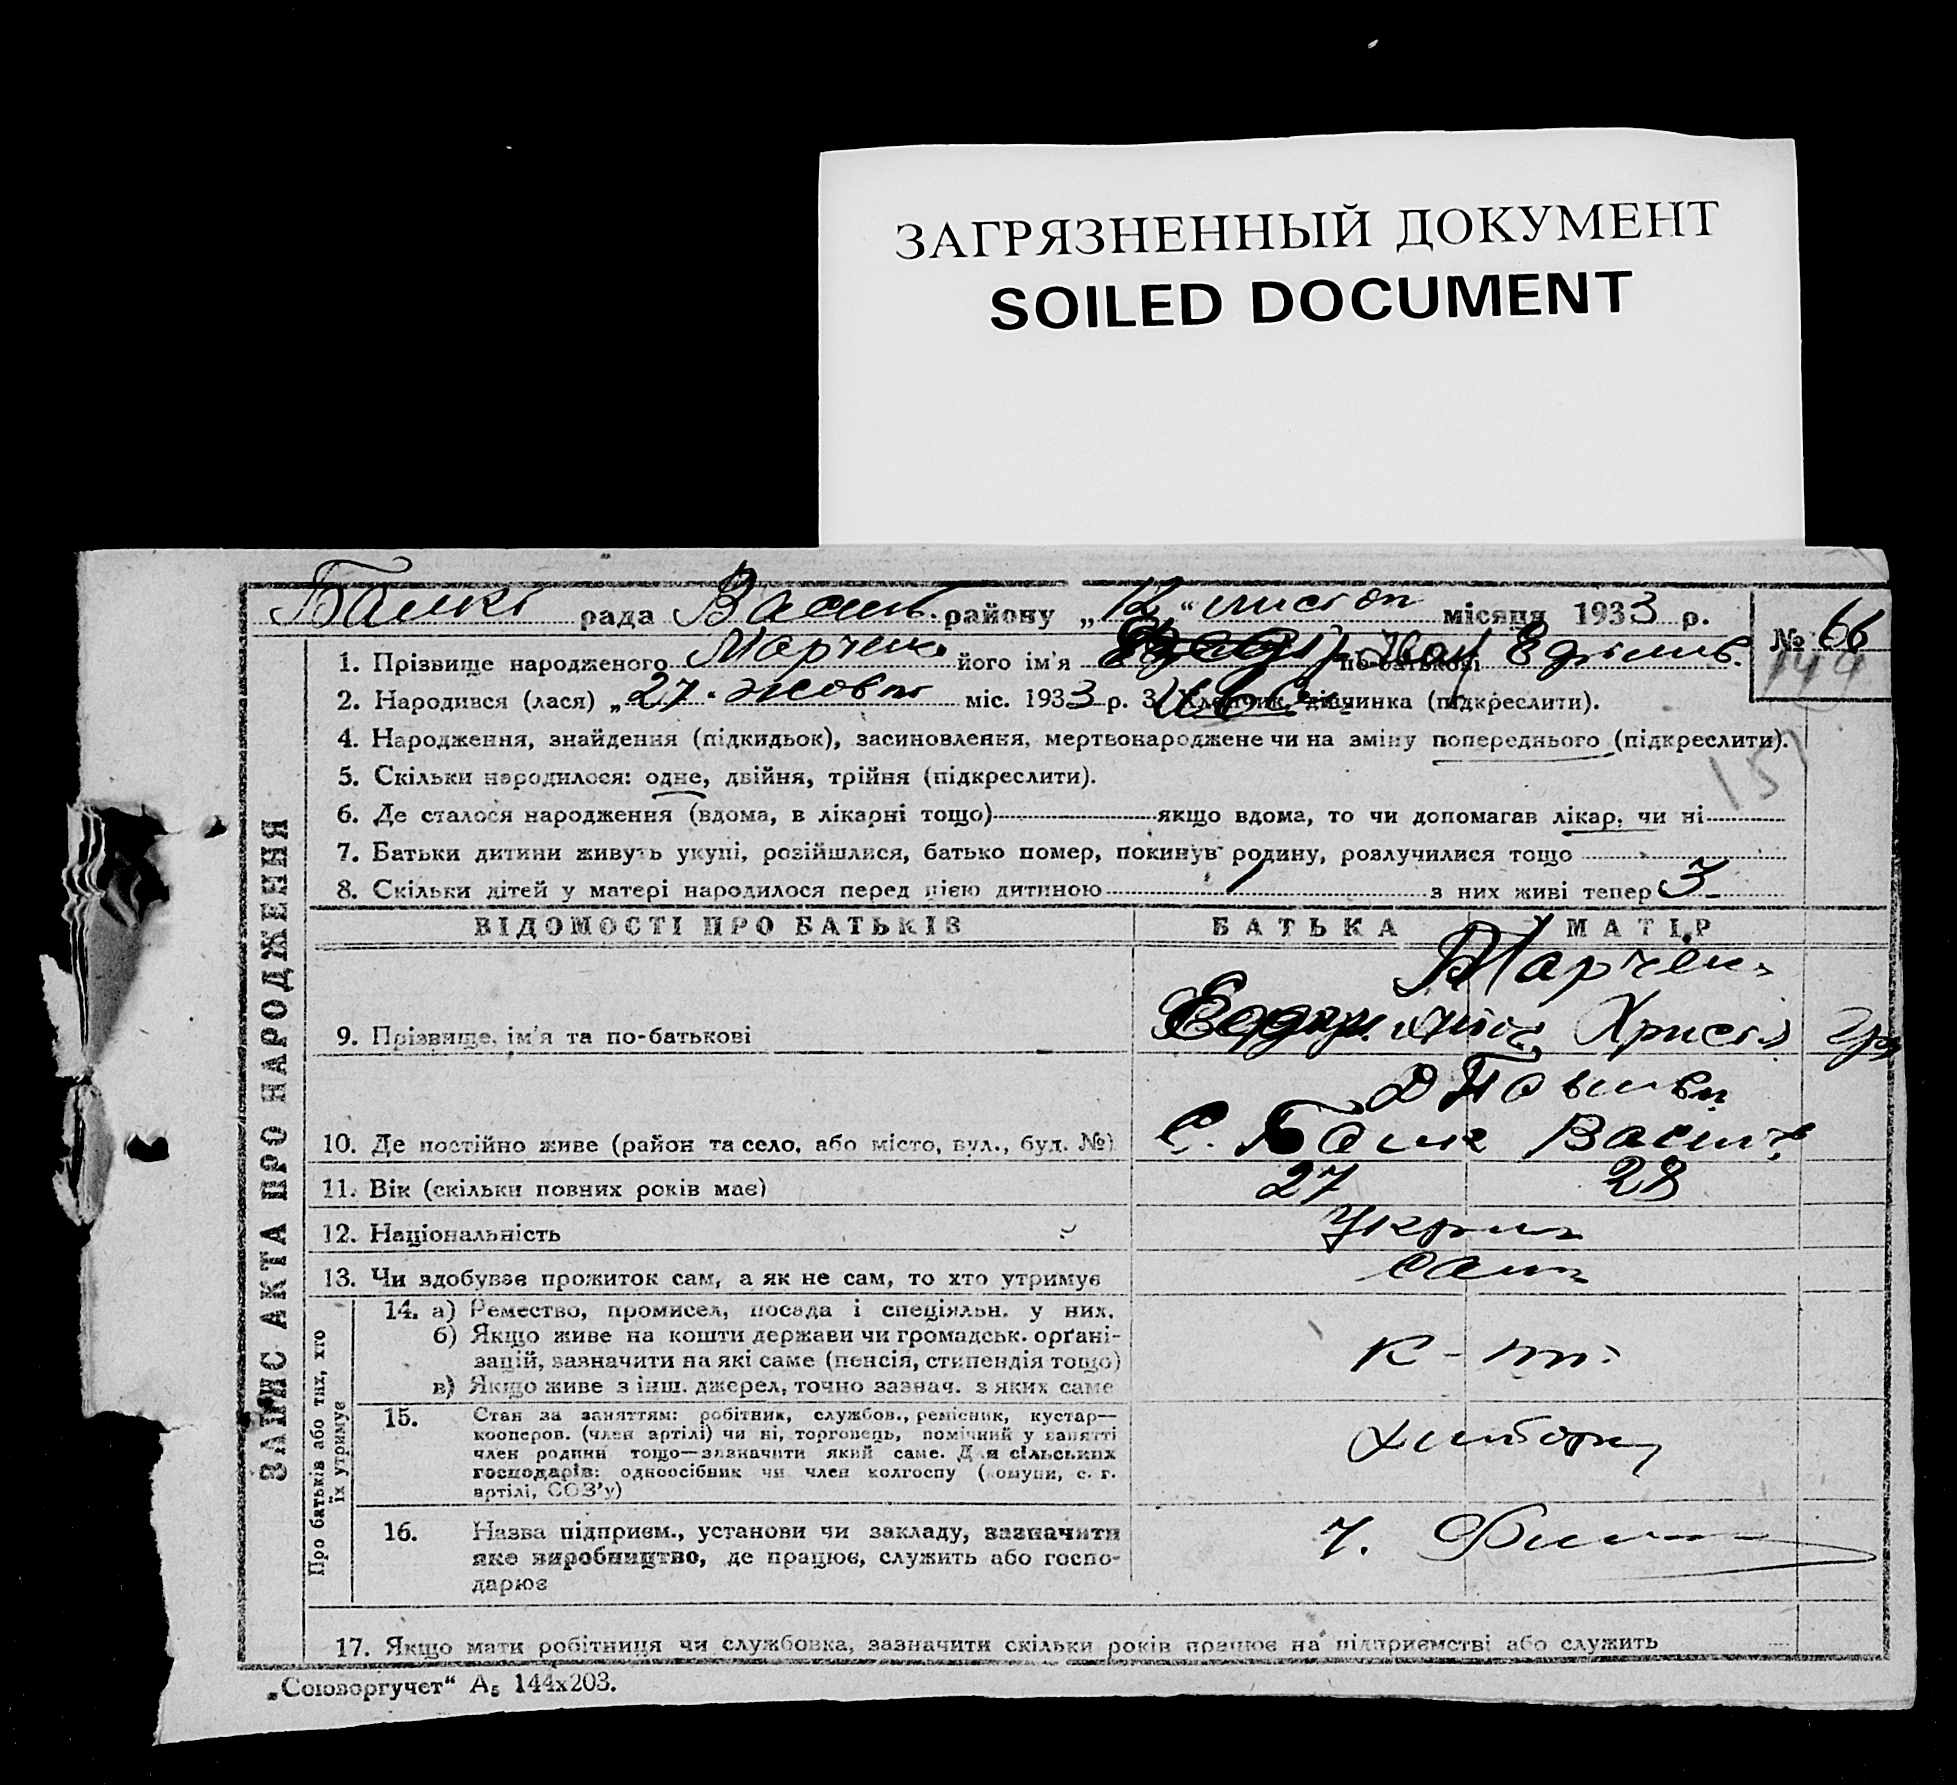 ЗАГРЯЗНЕННЫЙ ДОКУМЕНТ
SOILED DOCUMENT
рада Васильк. району „12“ листоп місяця 1933 р. № 66
1. Прізвище народженого Марченко його ім'я по-батькові
144
2. Народився (лася) „27. жовтн міс. 1933 р. 3. Хлопчик, дівчинка (підкреслити).
4. Народження, знайдення (підкидьок), засиновлення, мертвонароджене чи на зміну попереднього (підкреслити).
5. Скільки народилося: одне, двійня, трійня (підкреслити).
15
6. Де сталося народження (вдома, в лікарні тощо) якщо вдома, то чи допомагав лікар, чи ні
7. Батьки дитини живуть укупі, розійшлися, батько помер, покинув родину, розлучилися тощо
8. Скільки дітей у матері народилося перед цією дитиною з них живі тепер 3
ВІДОМОСТІ ПРО БАТЬКІВ БАТЬКА МАТІР
Марченко
9. Прізвище, ім'я та по-батькові Христя
10. Де постійно живе (район та село, або місто, вул., буд. №) С.
11. Вік (скільки повних років має) 27 28
12. Національність Україн
13. Чи здобуває прожиток сам, а як не сам, то хто утримує сам
14. а) Ремество, промисел, посада і спеціяльн. у них.
б) Якщо живе на кошти держави чи громадськ. орґані-
зацій, зазначити на які саме (пенсія, стипендія тощо)
в) Якщо живе з інш. джерел, точно зазнач. з яких саме
15. Стан за заняттям: робітник, службов., ремісник, кустар—
кооперов. (член артілі) чи ні, торговець, помічний у занятті
член родини тощо—зазначити який саме. Для сільських
господарів: одноосібник чи член колгоспу (комуни, с. г.
артілі, СОЗ'у)
хлібороб
16. Назва підприєм., установи чи закладу, зазначити
яке виробництво, де працює, служить або госпо-
дарює
17. Якщо мати робітниця чи службовка, зазначити скільки років працює на підприємстві або служить
ЗАПИС АКТА ПРО НАРОДЖЕННЯ
Про батьків або тих, хто
їх утримує
„Союзоргучет“ А5 144х203.